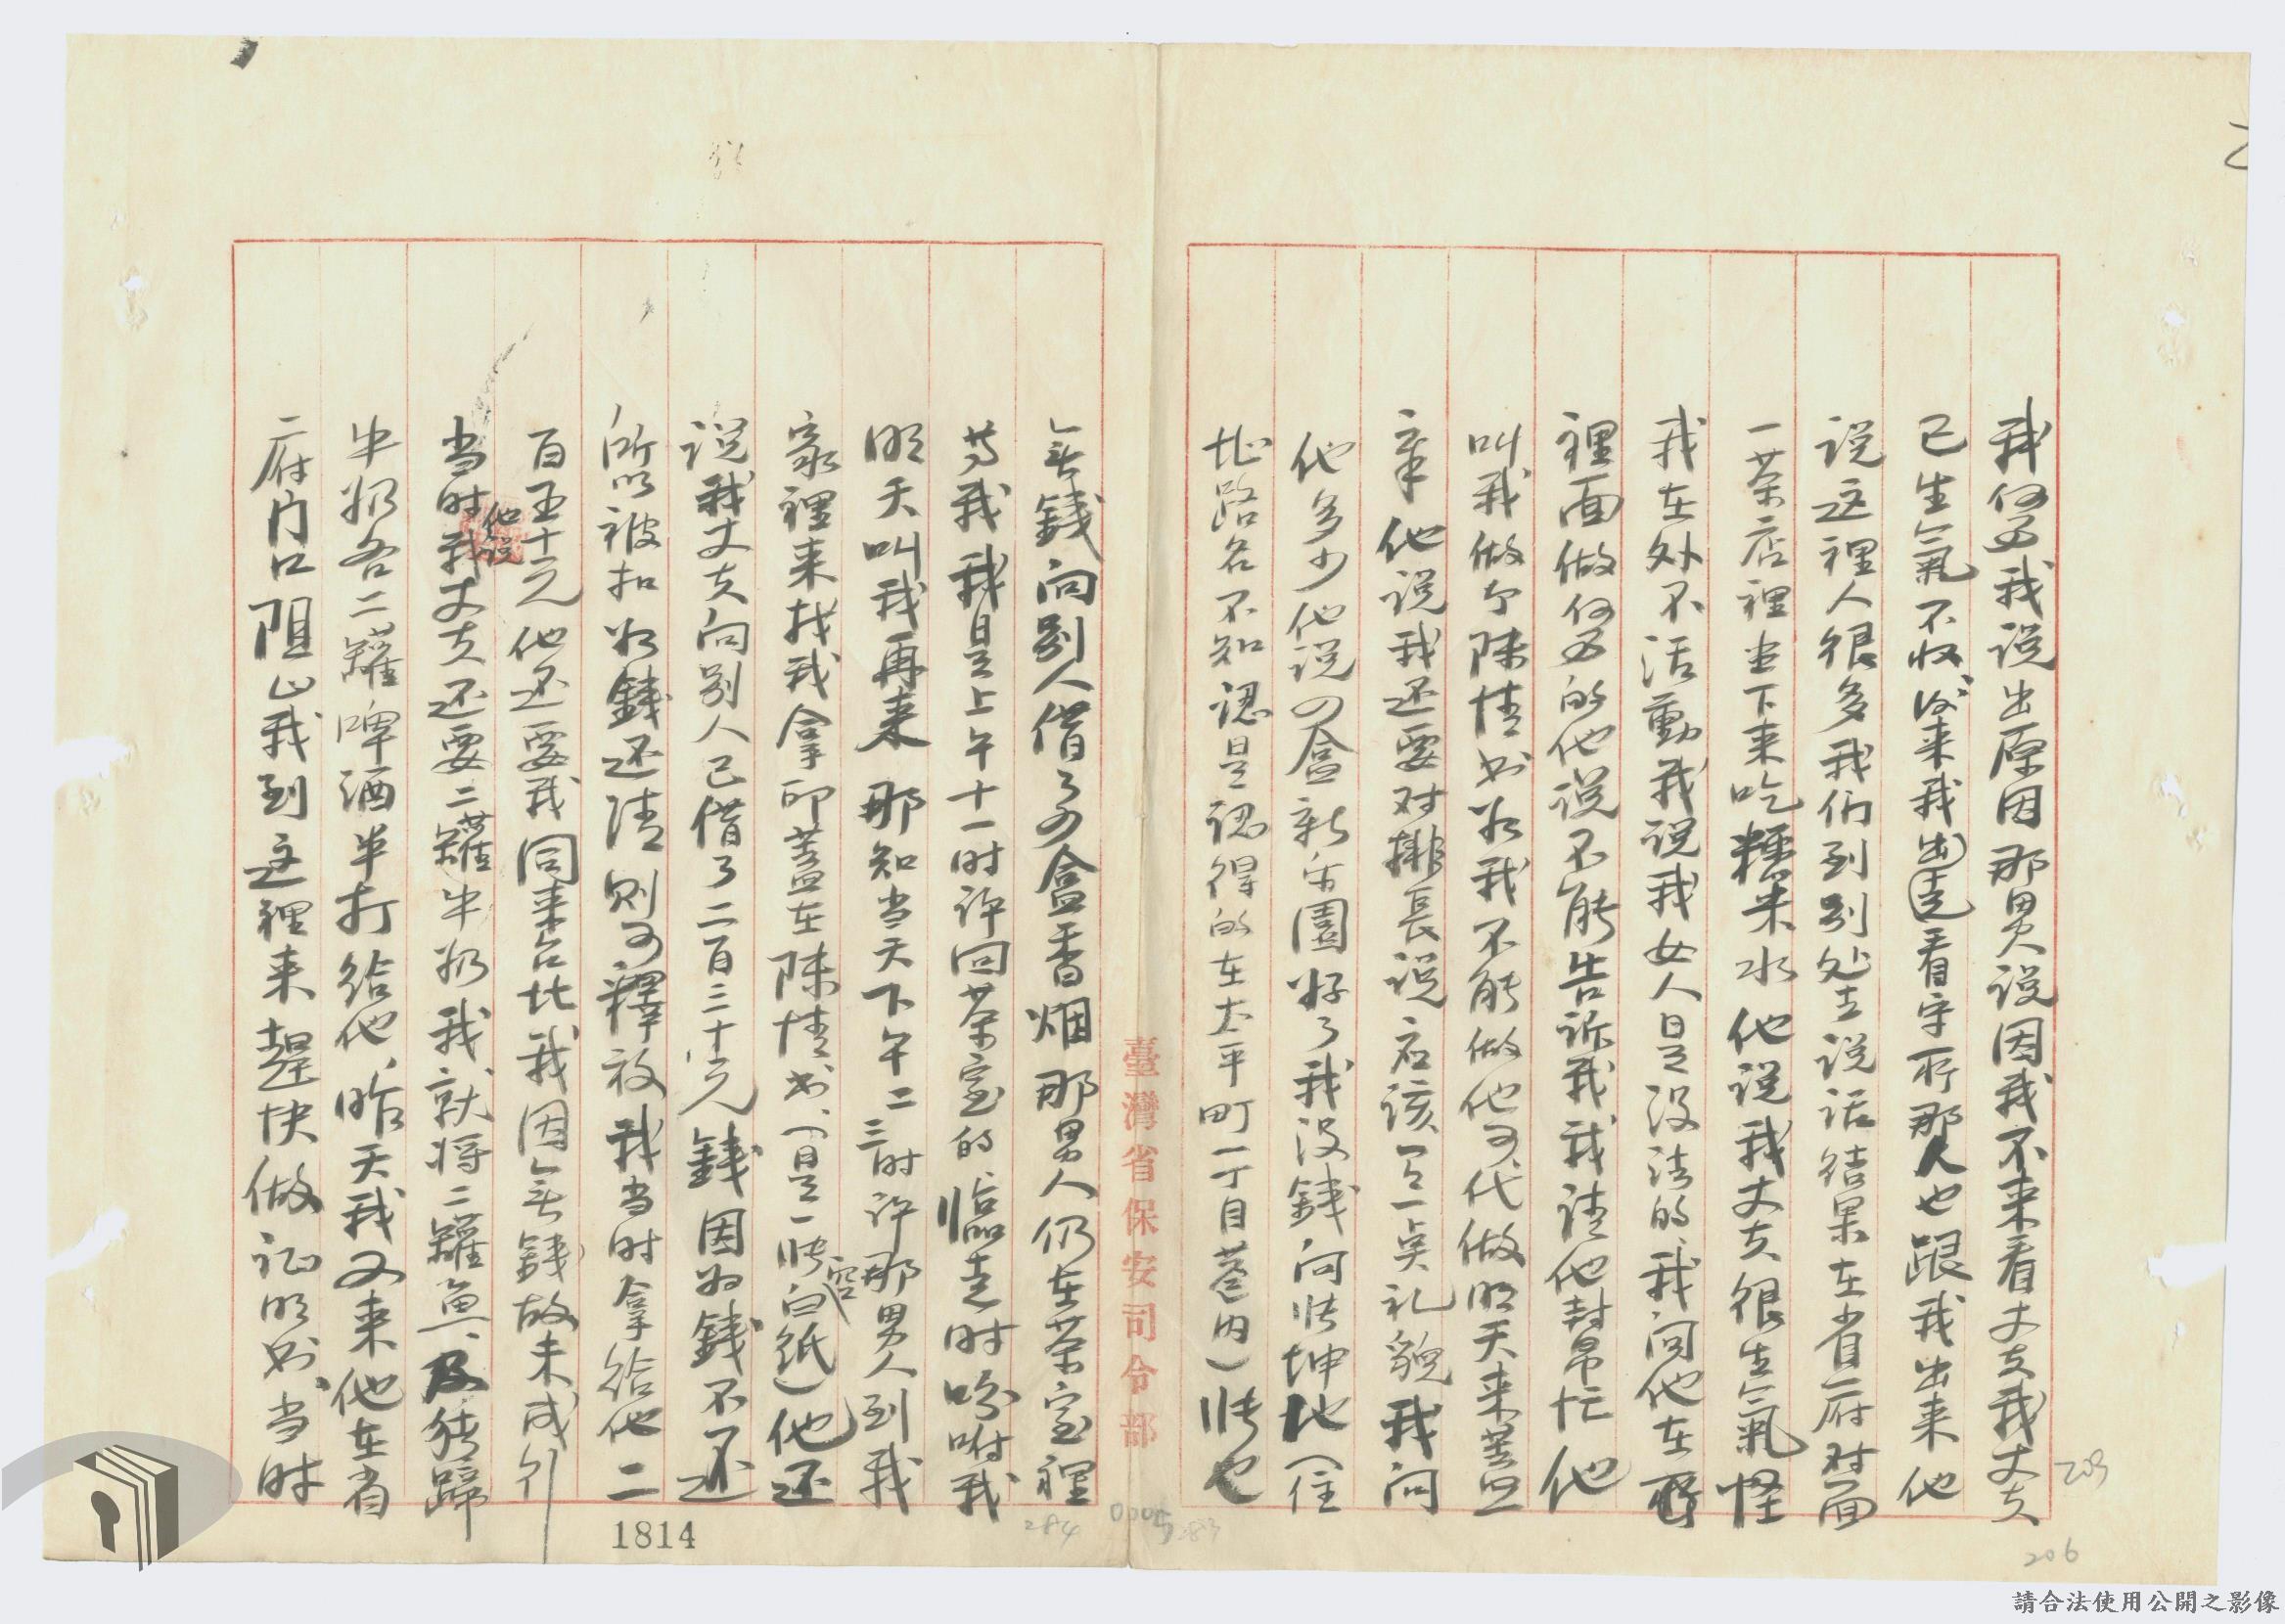 我何必我説出原因那男説因我不来看丈夫我丈夫
已生氣不收後来我出走看守所那人也跟我出来他
説这裡人很多我们到别处去説话結果在省府对面
一茶店裡坐下来吃糯米水他説我丈夫很生氣怪
我在外不活動我説我女人是没法的我问他在
裡面做何的他説不能告诉我我请他封帮忙他
叫我做个陳情书我不能做他可代做明天来蓋
章他説我还要对排長説应该買一点礼貌我问
他多少他説四盒新乐園好了我没錢向张坤地(住
址路名不知認是認得的在太平町一丁目巷内)张也
無錢向别人借了四盒香烟那男人仍在茶室裡
等我我是上午十一时许回茶室的临走时吩咐我
明天叫我再来那知当天下午二三时许那男人到我
家裡来找我拿印蓋在陳情书(是一张空白纸)他还
説我丈夫向别人已借了二百三十元錢因为錢不还
所以被扣如錢还清则可釋放我当时拿给他二
百五十元他还要我同来台北我因無錢故未成行
当时他説我丈夫还要二罐牛奶我就将二罐魚及猪蹄
牛奶各二罐啤酒半打给他昨天我又来他在省
府门口阻止我到这裡来趕快做证明书当时
臺灣省保安司令部
1814
284
0005
283
203
206
請合法使用公開之影像